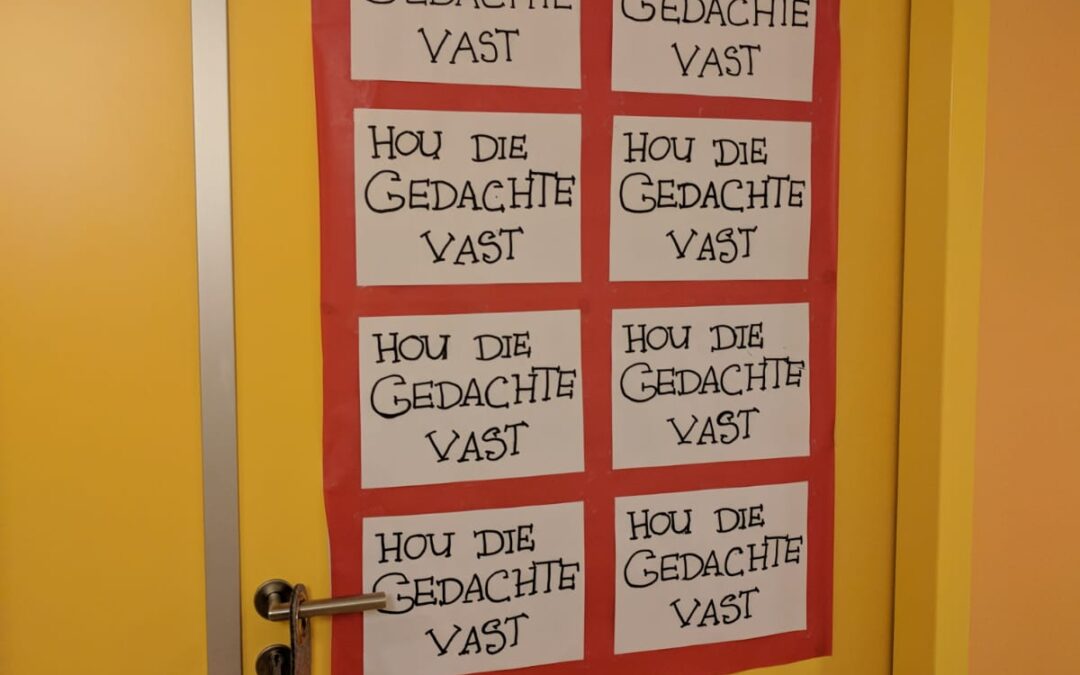 GEDACHTE
VAST
GEDACHTE
VAST
HOU DIE
GEDACHTE
VAST
HOU DIE
GEDACHTE
VAST
HOU DIE
GEDACHTE
VAST
HOU DIE
GEDACHTE
VAST
HOU DIE
GEDACHTE
VAST
HOU DIE
GEDACHTE
VAST